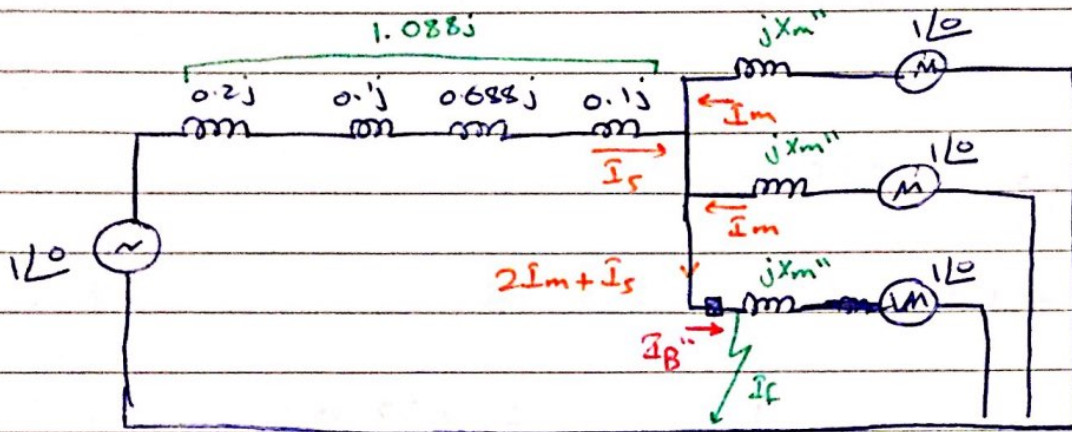 1.088j
jXm" 1∠0
0.2j 0.1j 0.688j 0.1j
M
Im
Is
jXm" 1∠0
M
Im
1∠0
~
2Im + Is
jXm" 1∠0
M
IB"
If